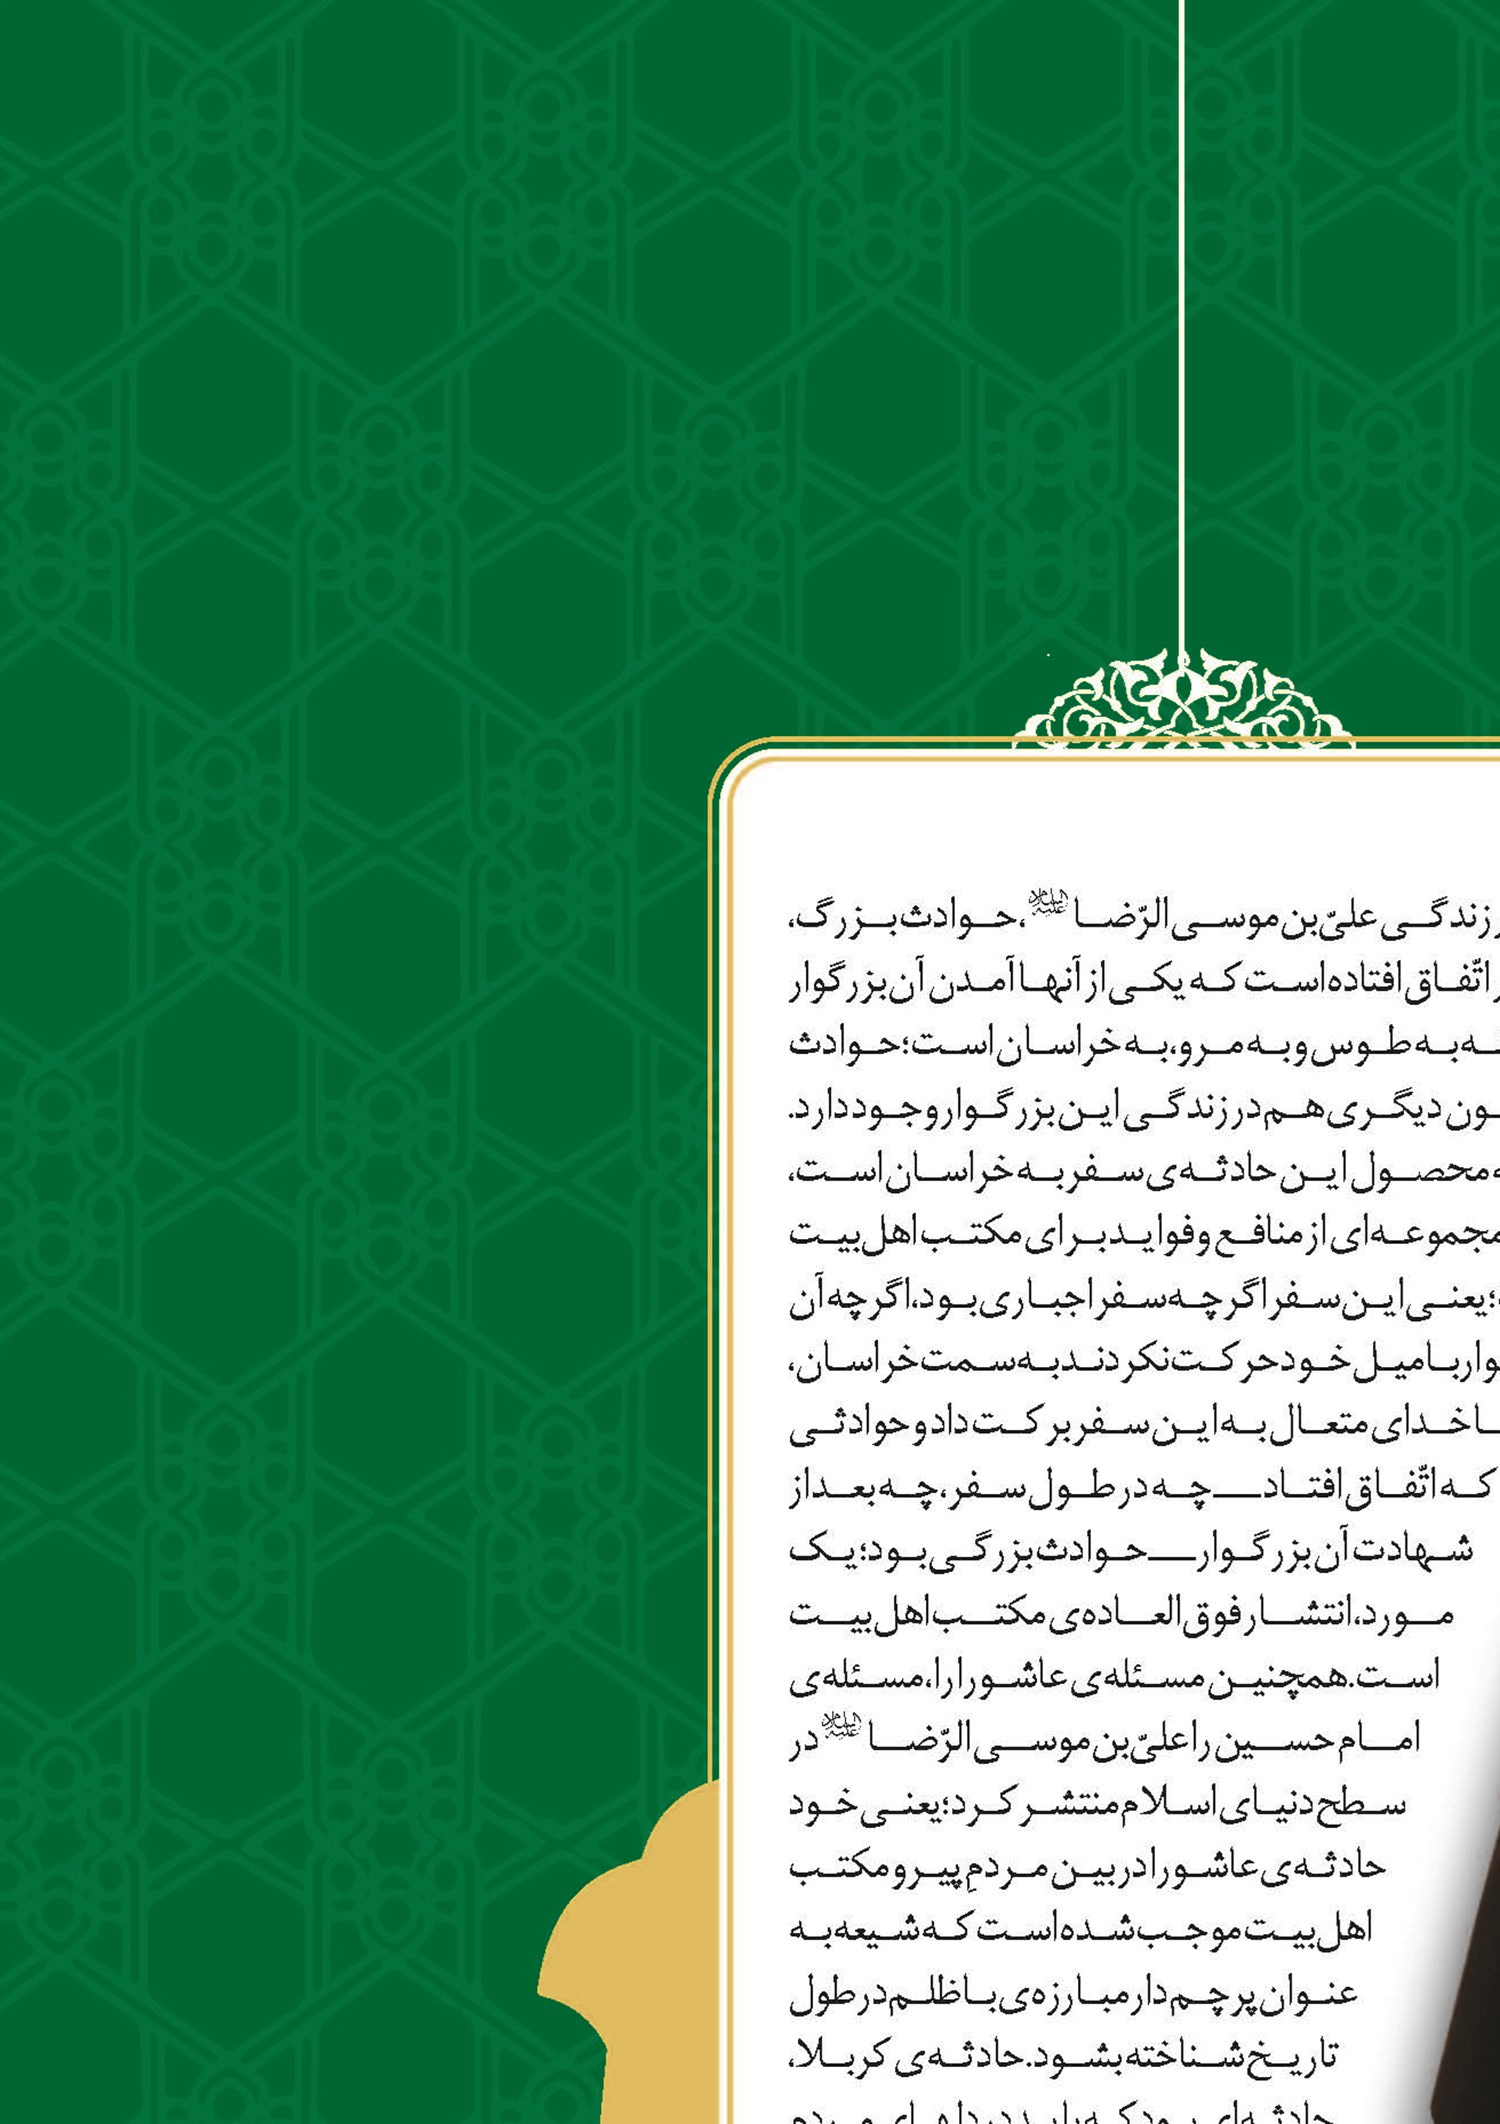 زندگی علیّ‌بن‌موسی‌الرّضا علیه‌السلام، حوادث بزرگ،
اتّفاق افتاده است که یکی از آنها آمدن آن بزرگوار
به طوس و به مرو، به خراسان است؛ حوادث
دیگری هم در زندگی این بزرگوار وجود دارد.
محصول این حادثه‌ی سفر به خراسان است،
مجموعه‌ای از منافع و فواید برای مکتب اهل‌بیت
؛ یعنی این سفر اگرچه سفر اجباری بود، اگرچه آن
با میل خود حرکت نکردند به سمت خراسان،
خدای متعال به این سفر برکت داد و حوادثی
که اتّفاق افتاد ــ چه در طول سفر، چه بعد از
شهادت آن بزرگوار ــ حوادث بزرگی بود؛ یک
مورد، انتشار فوق‌العاده‌ی مکتب اهل‌بیت
است. همچنین مسئله‌ی عاشورا را، مسئله‌ی
امام حسین را علیّ‌بن‌موسی‌الرّضا علیه‌السلام در
سطح دنیای اسلام منتشر کرد؛ یعنی خود
حادثه‌ی عاشورا در بین مردمِ پیرو مکتب
اهل‌بیت موجب شده است که شیعه به
عنوان پرچم‌دار مبارزه‌ی با ظلم در طول
تاریخ شناخته بشود. حادثه‌ی کربلا،